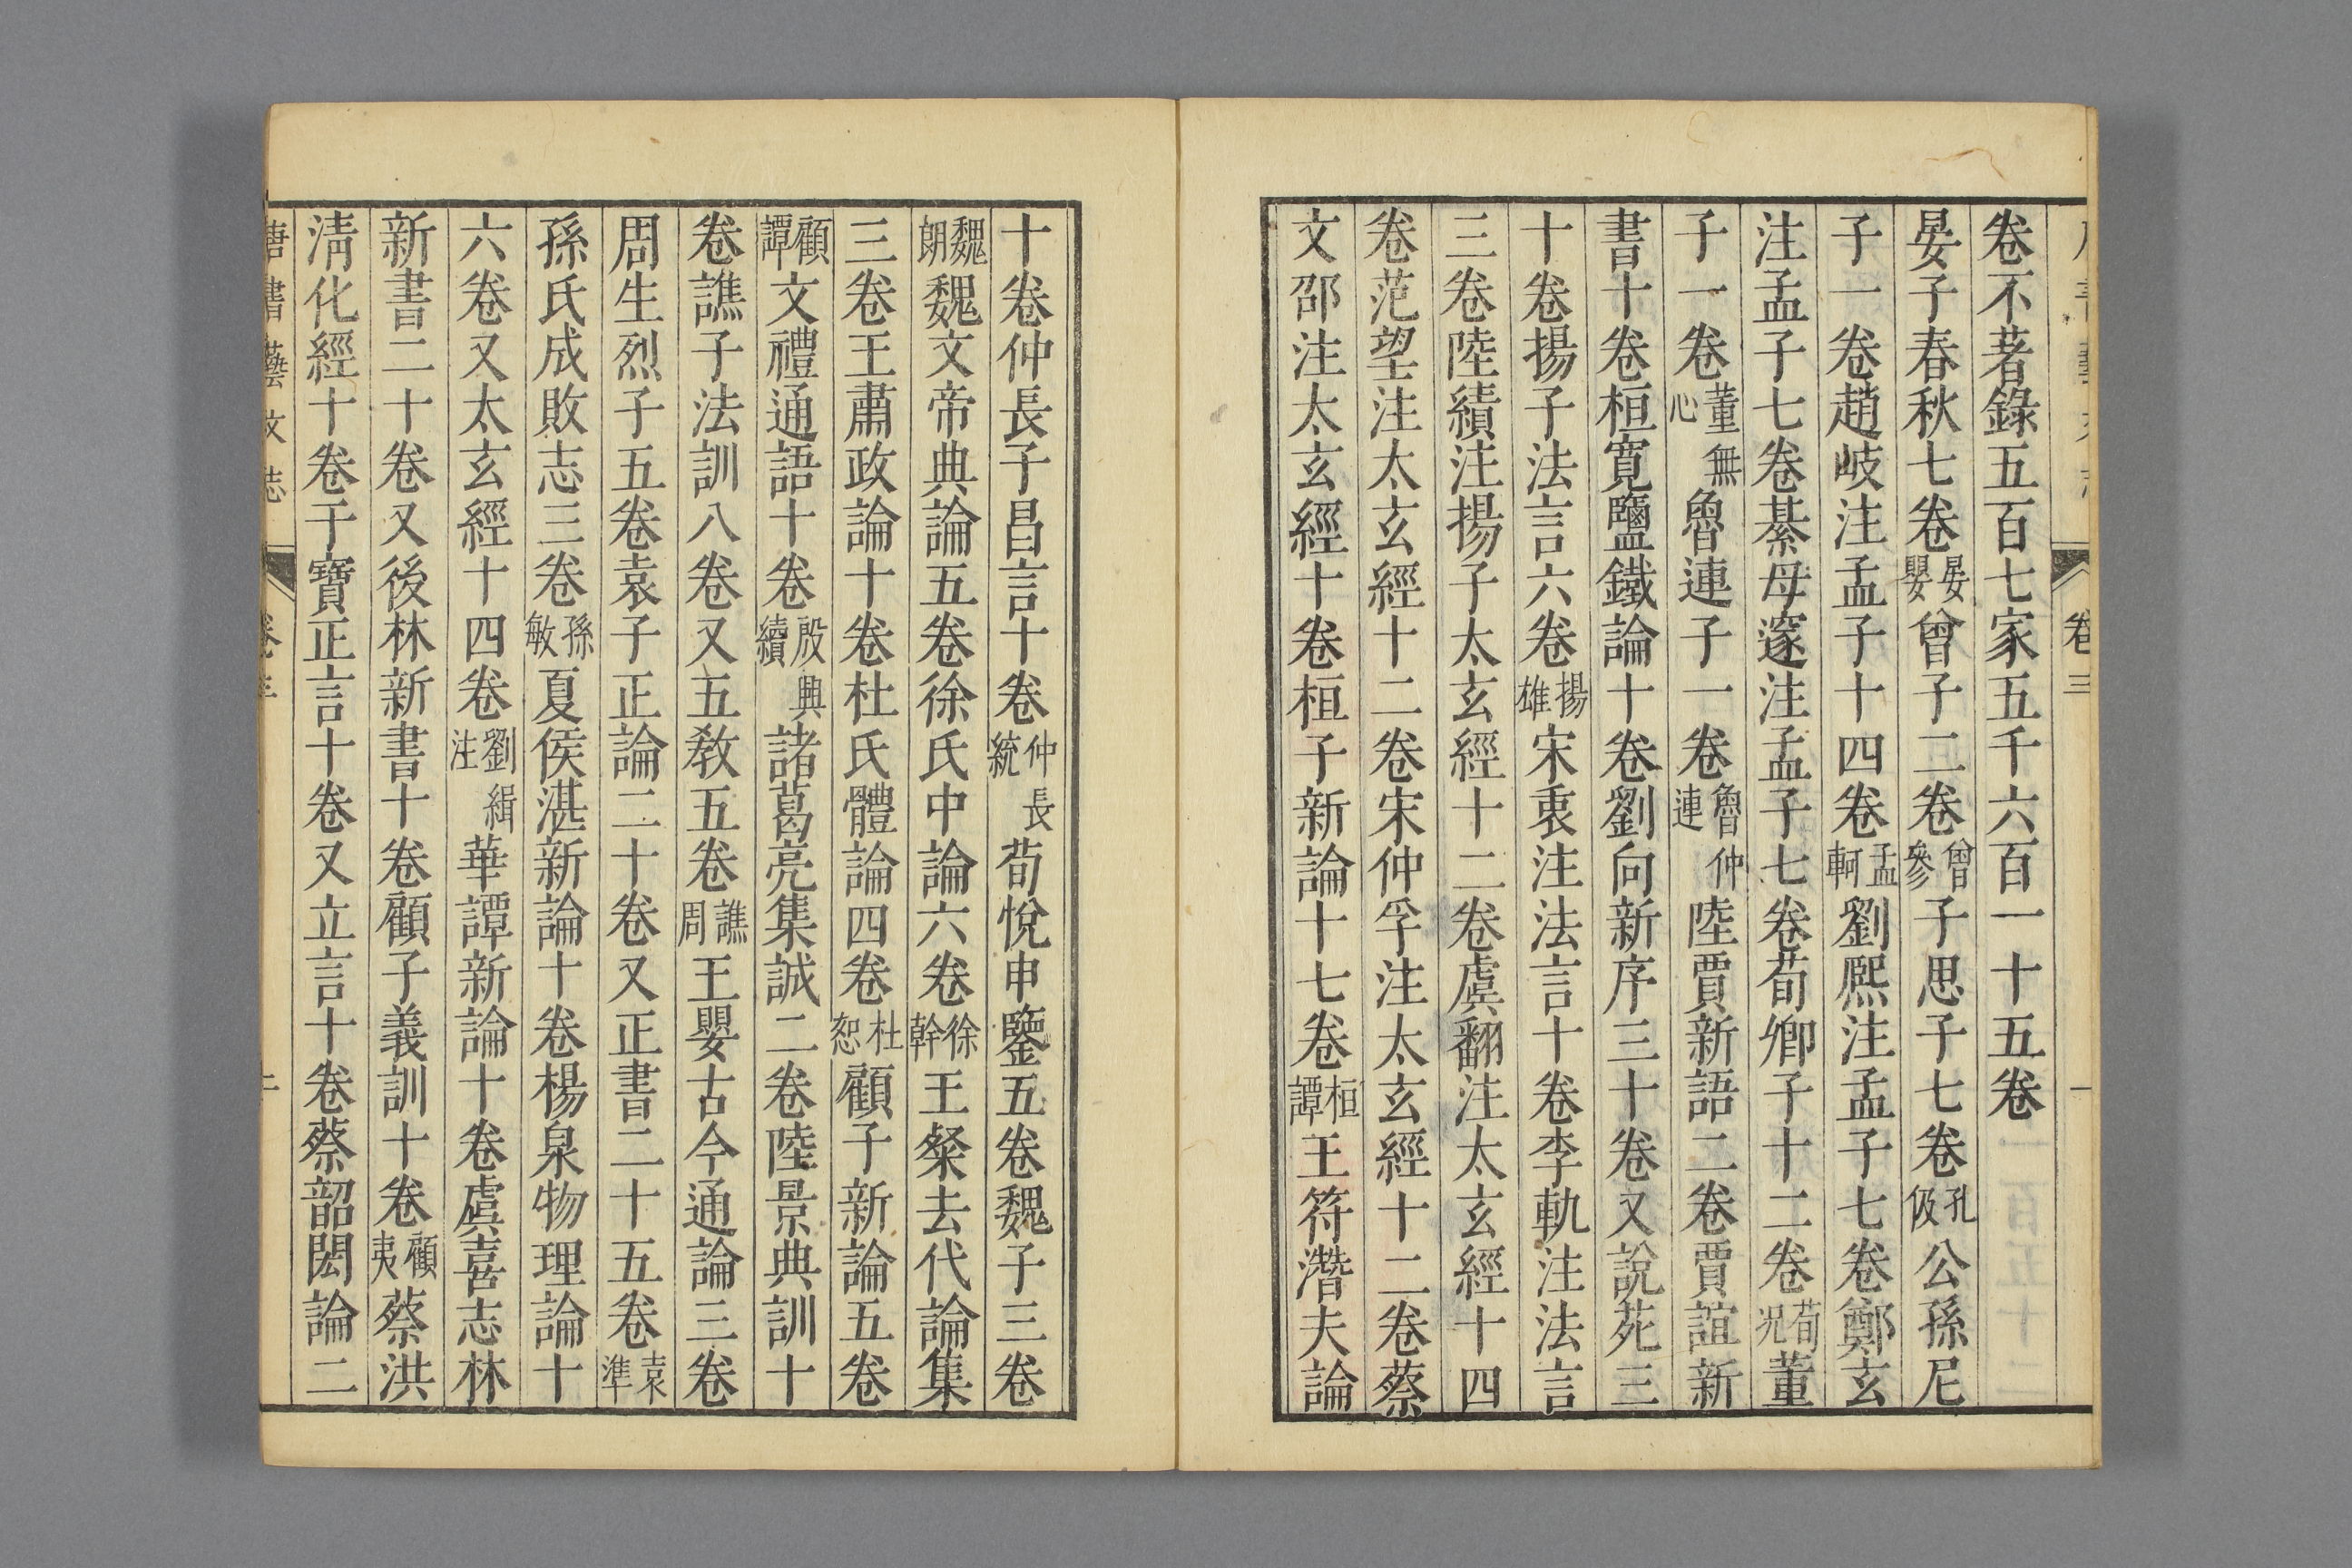 卷三
一
卷不著錄五百七家五千六百一十五卷
晏子春秋七卷晏嬰曾子二卷曾參子思子七卷孔伋公孫尼
子一卷趙岐注孟子十四卷孟軻劉熙注孟子七卷鄭玄
注孟子七卷綦母邃注孟子七卷荀卿子十二卷荀況董
子一卷董無心魯連子一卷魯仲連陸賈新語二卷賈誼新
書十卷桓寬鹽鐵論十卷劉向新序三十卷又說苑三
十卷揚子法言六卷揚雄宋衷注法言十卷李軌注法言
三卷陸績注揚子太玄經十二卷虞翻注太玄經十四
卷范望注太玄經十二卷宋仲孚注太玄經十二卷蔡
文邵注太玄經十卷桓子新論十七卷桓譚王符潛夫論
十卷仲長子昌言十卷仲長統荀悅申鑒五卷魏子三卷
魏朗魏文帝典論五卷徐氏中論六卷徐幹王粲去代論集
三卷王肅政論十卷杜氏體論四卷杜恕顧子新論五卷
顧譚文禮通語十卷殷興續諸葛亮集誡二卷陸景典訓十
卷譙子法訓八卷又五教五卷譙周王嬰古今通論三卷
周生烈子五卷袁子正論二十卷又正書二十五卷袁準
孫氏成敗志三卷孫敏夏侯湛新論十卷楊泉物理論十
六卷又太玄經十四卷劉緝注華譚新論十卷虞喜志林
新書二十卷又後林新書十卷顧子義訓十卷顧夷蔡洪
清化經十卷于寶正言十卷又立言十卷蔡韶閎論二
唐書藝文志
卷三